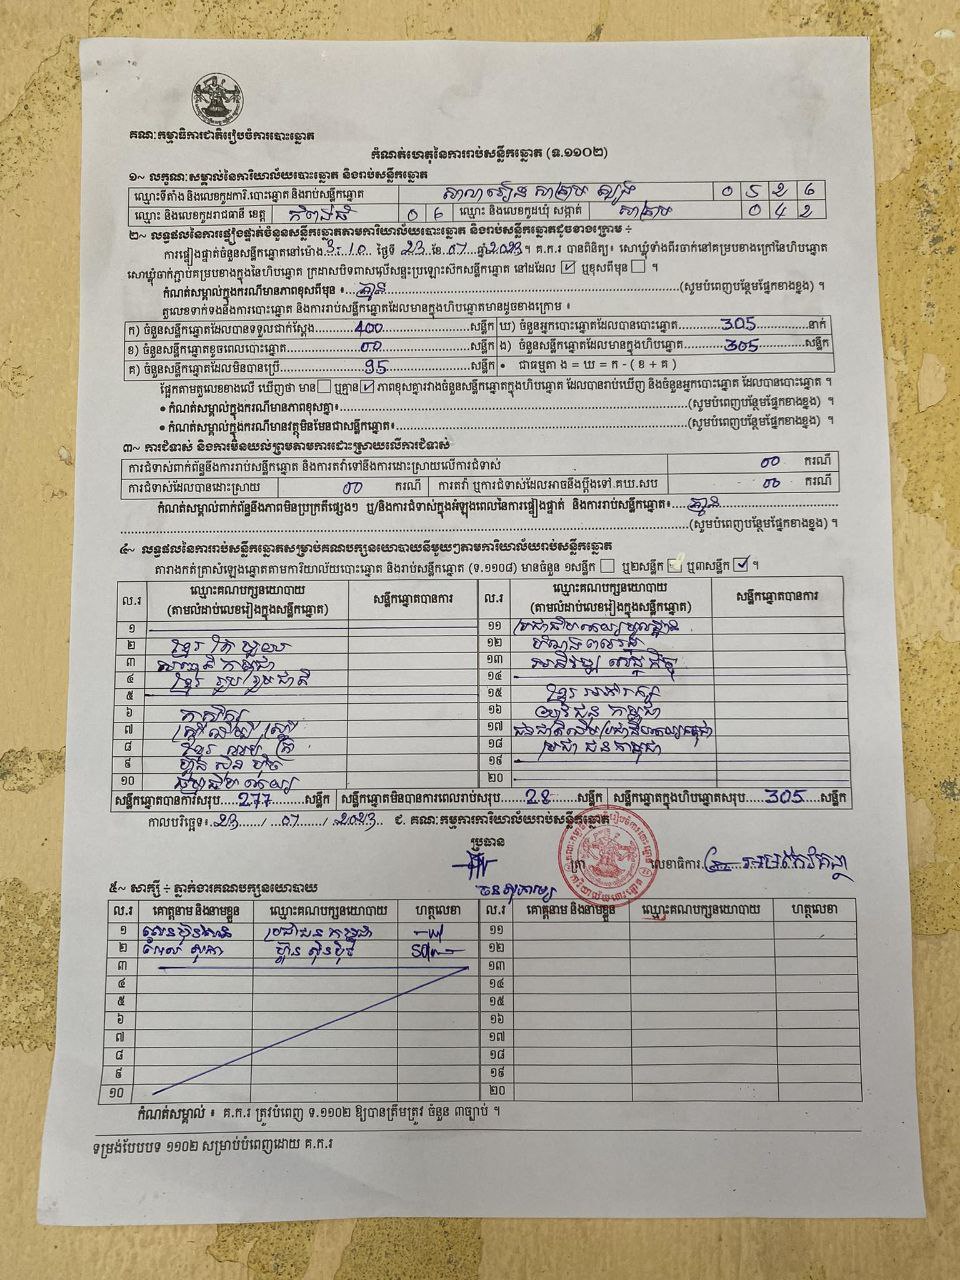 គណៈកម្មាធិការជាតិរៀបចំការបោះឆ្នោត
កំណត់ហេតុនៃការរាប់សន្លឹកឆ្នោត (ទ.១១០២)
១~ លក្ខណៈសម្គាល់នៃការិយាល័យបោះឆ្នោត និងរាប់សន្លឹកឆ្នោត
ឈ្មោះទីតាំង និងលេខកូដការិ.បោះឆ្នោត និងរាប់សន្លឹកឆ្នោត សាលារៀន 0 5 2 6
ឈ្មោះ និងលេខកូដរាជធានី ខេត្ត កំពង់ធំ 0 6 ឈ្មោះ និងលេខកូដឃុំ សង្កាត់ 0 4 2
២~ លទ្ធផលនៃការផ្ទៀងផ្ទាត់ចំនួនសន្លឹកឆ្នោតតាមការិយាល័យបោះឆ្នោត និងរាប់សន្លឹកឆ្នោតដូចខាងក្រោម ÷
ការផ្ទៀងផ្ទាត់ចំនួនសន្លឹកឆ្នោតនៅម៉ោង 3:10 ថ្ងៃទី 23 ខែ 07 ឆ្នាំ 2023។ គ.ក.រ បានពិនិត្យ៖ សោឃ្លុំទាំងពីរចាក់នៅគម្របខាងក្រៅនៃហិបឆ្នោត
សោឃ្លុំចាក់ភ្ជាប់គម្របខាងក្នុងនៃហិបឆ្នោត ក្រដាសបិទពាសលើសន្ទះប្រឡោះសឹកសន្លឹកឆ្នោត នៅដដែល ✓ ឬខុសពីមុន ។
កំណត់សម្គាល់ក្នុងករណីមានភាពខុសពីមុន ៖ គ្មាន (សូមបំពេញបន្ថែមផ្នែកខាងខ្នង) ។
តួលេខទាក់ទងនឹងការបោះឆ្នោត និងការរាប់សន្លឹកឆ្នោតដែលមានក្នុងហិបឆ្នោតមានដូចខាងក្រោម ៖
ក) ចំនួនសន្លឹកឆ្នោតដែលបានទទួលជាក់ស្តែង 400 សន្លឹក ឃ) ចំនួនអ្នកបោះឆ្នោតដែលបានបោះឆ្នោត 305 នាក់
ខ) ចំនួនសន្លឹកឆ្នោតខូចពេលបោះឆ្នោត 00 សន្លឹក ង) ចំនួនសន្លឹកឆ្នោតដែលមានក្នុងហិបឆ្នោត 305 សន្លឹក
គ) ចំនួនសន្លឹកឆ្នោតដែលមិនបានប្រើ 95 សន្លឹក • ជាធម្មតា ង = ឃ = ក - ( ខ + គ )
ផ្អែកតាមតួលេខខាងលើ ឃើញថា មាន ឬគ្មាន ✓ ភាពខុសគ្នារវាងចំនួនសន្លឹកឆ្នោតក្នុងហិបឆ្នោត ដែលបានរាប់ឃើញ និងចំនួនអ្នកបោះឆ្នោត ដែលបានបោះឆ្នោត ។
• កំណត់សម្គាល់ក្នុងករណីមានភាពខុសគ្នា៖ (សូមបំពេញបន្ថែមផ្នែកខាងខ្នង) ។
• កំណត់សម្គាល់ក្នុងករណីមានវត្ថុមិនមែនជាសន្លឹកឆ្នោត៖ (សូមបំពេញបន្ថែមផ្នែកខាងខ្នង) ។
៣~ ការជំទាស់ និងការមិនយល់ព្រមតាមការដោះស្រាយលើការជំទាស់
ការជំទាស់ពាក់ព័ន្ធនឹងការរាប់សន្លឹកឆ្នោត និងការតវ៉ាទៅនឹងការដោះស្រាយលើការជំទាស់ 00 ករណី
ការជំទាស់ដែលបានដោះស្រាយ 00 ករណី ការតវ៉ា ឬការជំទាស់ដែលអាចនឹងប្តឹងទៅ.គឃ.សប 00 ករណី
កំណត់សម្គាល់ពាក់ព័ន្ធនឹងភាពមិនប្រក្រតីផ្សេងៗ ឬ/និងការជំទាស់ក្នុងអំឡុងពេលនៃការផ្ទៀងផ្ទាត់ និងការរាប់សន្លឹកឆ្នោត៖ គ្មាន
(សូមបំពេញបន្ថែមផ្នែកខាងខ្នង) ។
៤~ លទ្ធផលនៃការរាប់សន្លឹកឆ្នោតសម្រាប់គណបក្សនយោបាយនីមួយៗតាមការិយាល័យរាប់សន្លឹកឆ្នោត
តារាងកត់ត្រាសំឡេងឆ្នោតតាមការិយាល័យបោះឆ្នោត និងរាប់សន្លឹកឆ្នោត (ទ.១១០៨) មានចំនួន ១សន្លឹក ឬ២សន្លឹក ឬ៣សន្លឹក ✓ ។
ល.រ ឈ្មោះគណបក្សនយោបាយ (តាមលំដាប់លេខរៀងក្នុងសន្លឹកឆ្នោត) សន្លឹកឆ្នោតបានការ ល.រ ឈ្មោះគណបក្សនយោបាយ (តាមលំដាប់លេខរៀងក្នុងសន្លឹកឆ្នោត) សន្លឹកឆ្នោតបានការ
១ ១១ ប្រជាធិបតេយ្យមូលដ្ឋាន
២ ខ្មែរ ១២
៣ កម្ពុជា ១៣
៤ ខ្មែរ រួបរួមជាតិ ១៤
៥ ១៥ ខ្មែរ អភិរក្ស
៦ ១៦ យុវជន កម្ពុជា
៧ ១៧
៨ ខ្មែរ ១៨ ប្រជាជនកម្ពុជា
៩ ហ៊្វុនស៊ិនប៉ិច ១៩
១០ ធម្មាធិបតេយ្យ ២០
សន្លឹកឆ្នោតបានការសរុប 277 សន្លឹក សន្លឹកឆ្នោតមិនបានការពេលរាប់សរុប 28 សន្លឹក សន្លឹកឆ្នោតក្នុងហិបឆ្នោតសរុប 305 សន្លឹក
កាលបរិច្ឆេទ៖ 23 / 07 / 2023 ជ. គណៈកម្មការការិយាល័យរាប់សន្លឹកឆ្នោត
ប្រធាន
ត្រា លេខាធិការ
៥~ សាក្សី ÷ ភ្នាក់ងារគណបក្សនយោបាយ
ល.រ គោត្តនាម និងនាមខ្លួន ឈ្មោះគណបក្សនយោបាយ ហត្ថលេខា ល.រ គោត្តនាម និងនាមខ្លួន ឈ្មោះគណបក្សនយោបាយ ហត្ថលេខា
១ ប្រជាជន កម្ពុជា ១១
២ ហ៊្វុនស៊ិនប៉ិច ១២
៣ ១៣
៤ ១៤
៥ ១៥
៦ ១៦
៧ ១៧
៨ ១៨
៩ ១៩
១០ ២០
កំណត់សម្គាល់ ៖ គ.ក.រ ត្រូវបំពេញ ទ.១១០២ ឱ្យបានត្រឹមត្រូវ ចំនួន ៣ច្បាប់ ។
ទម្រង់បែបបទ ១១០២ សម្រាប់បំពេញដោយ គ.ក.រ